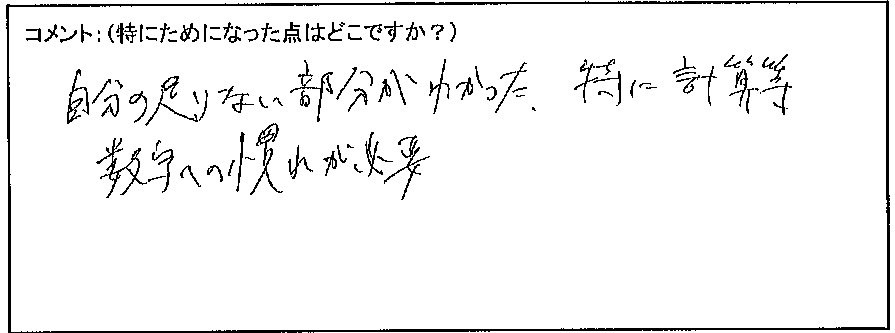 コメント:(特にためになった点はどこですか?)
自分の足りない部分がわかった、特に計算等
数字への慣れが必要